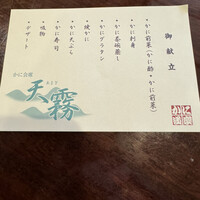 御献立
・かに前菜(かに酢・かに前菜)
・かに刺身
・かに茶碗蒸し
・かにグラタン
・焼かに
・かに天ぷら
・かに寿司
・吸物
・デザート
かに会席
天霧